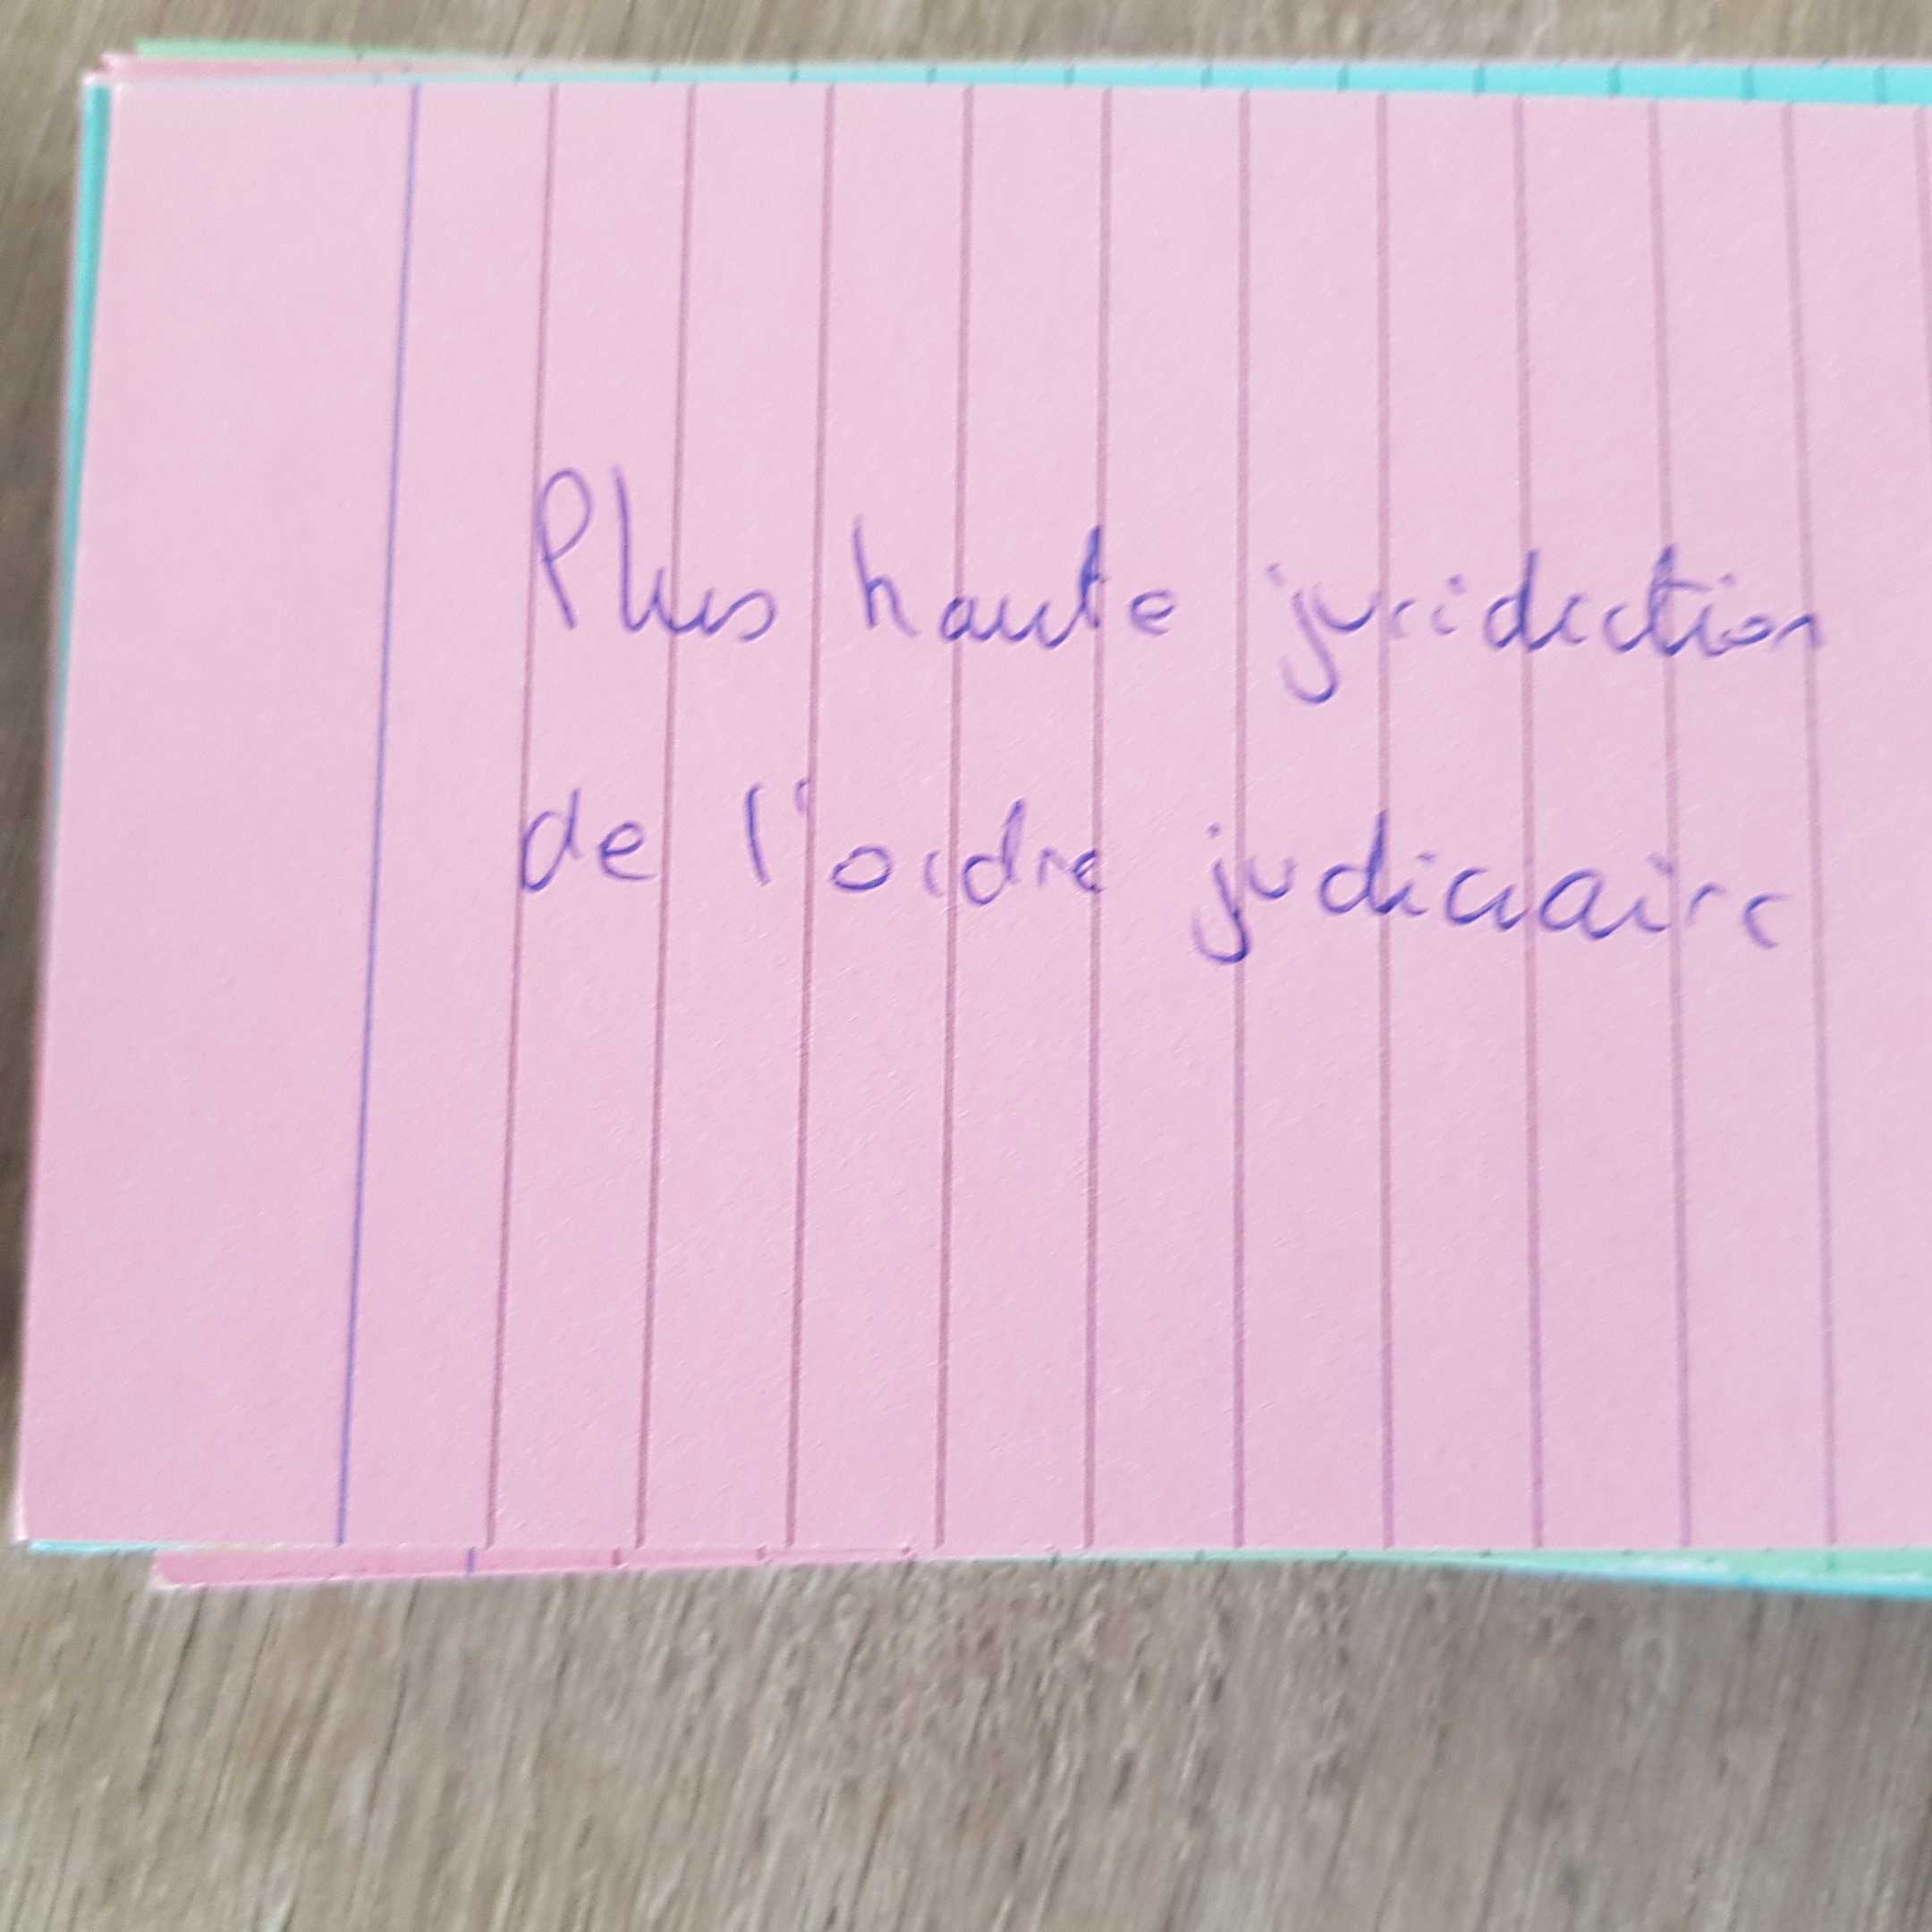 Plus haute juridiction
de l'ordre judiciaire